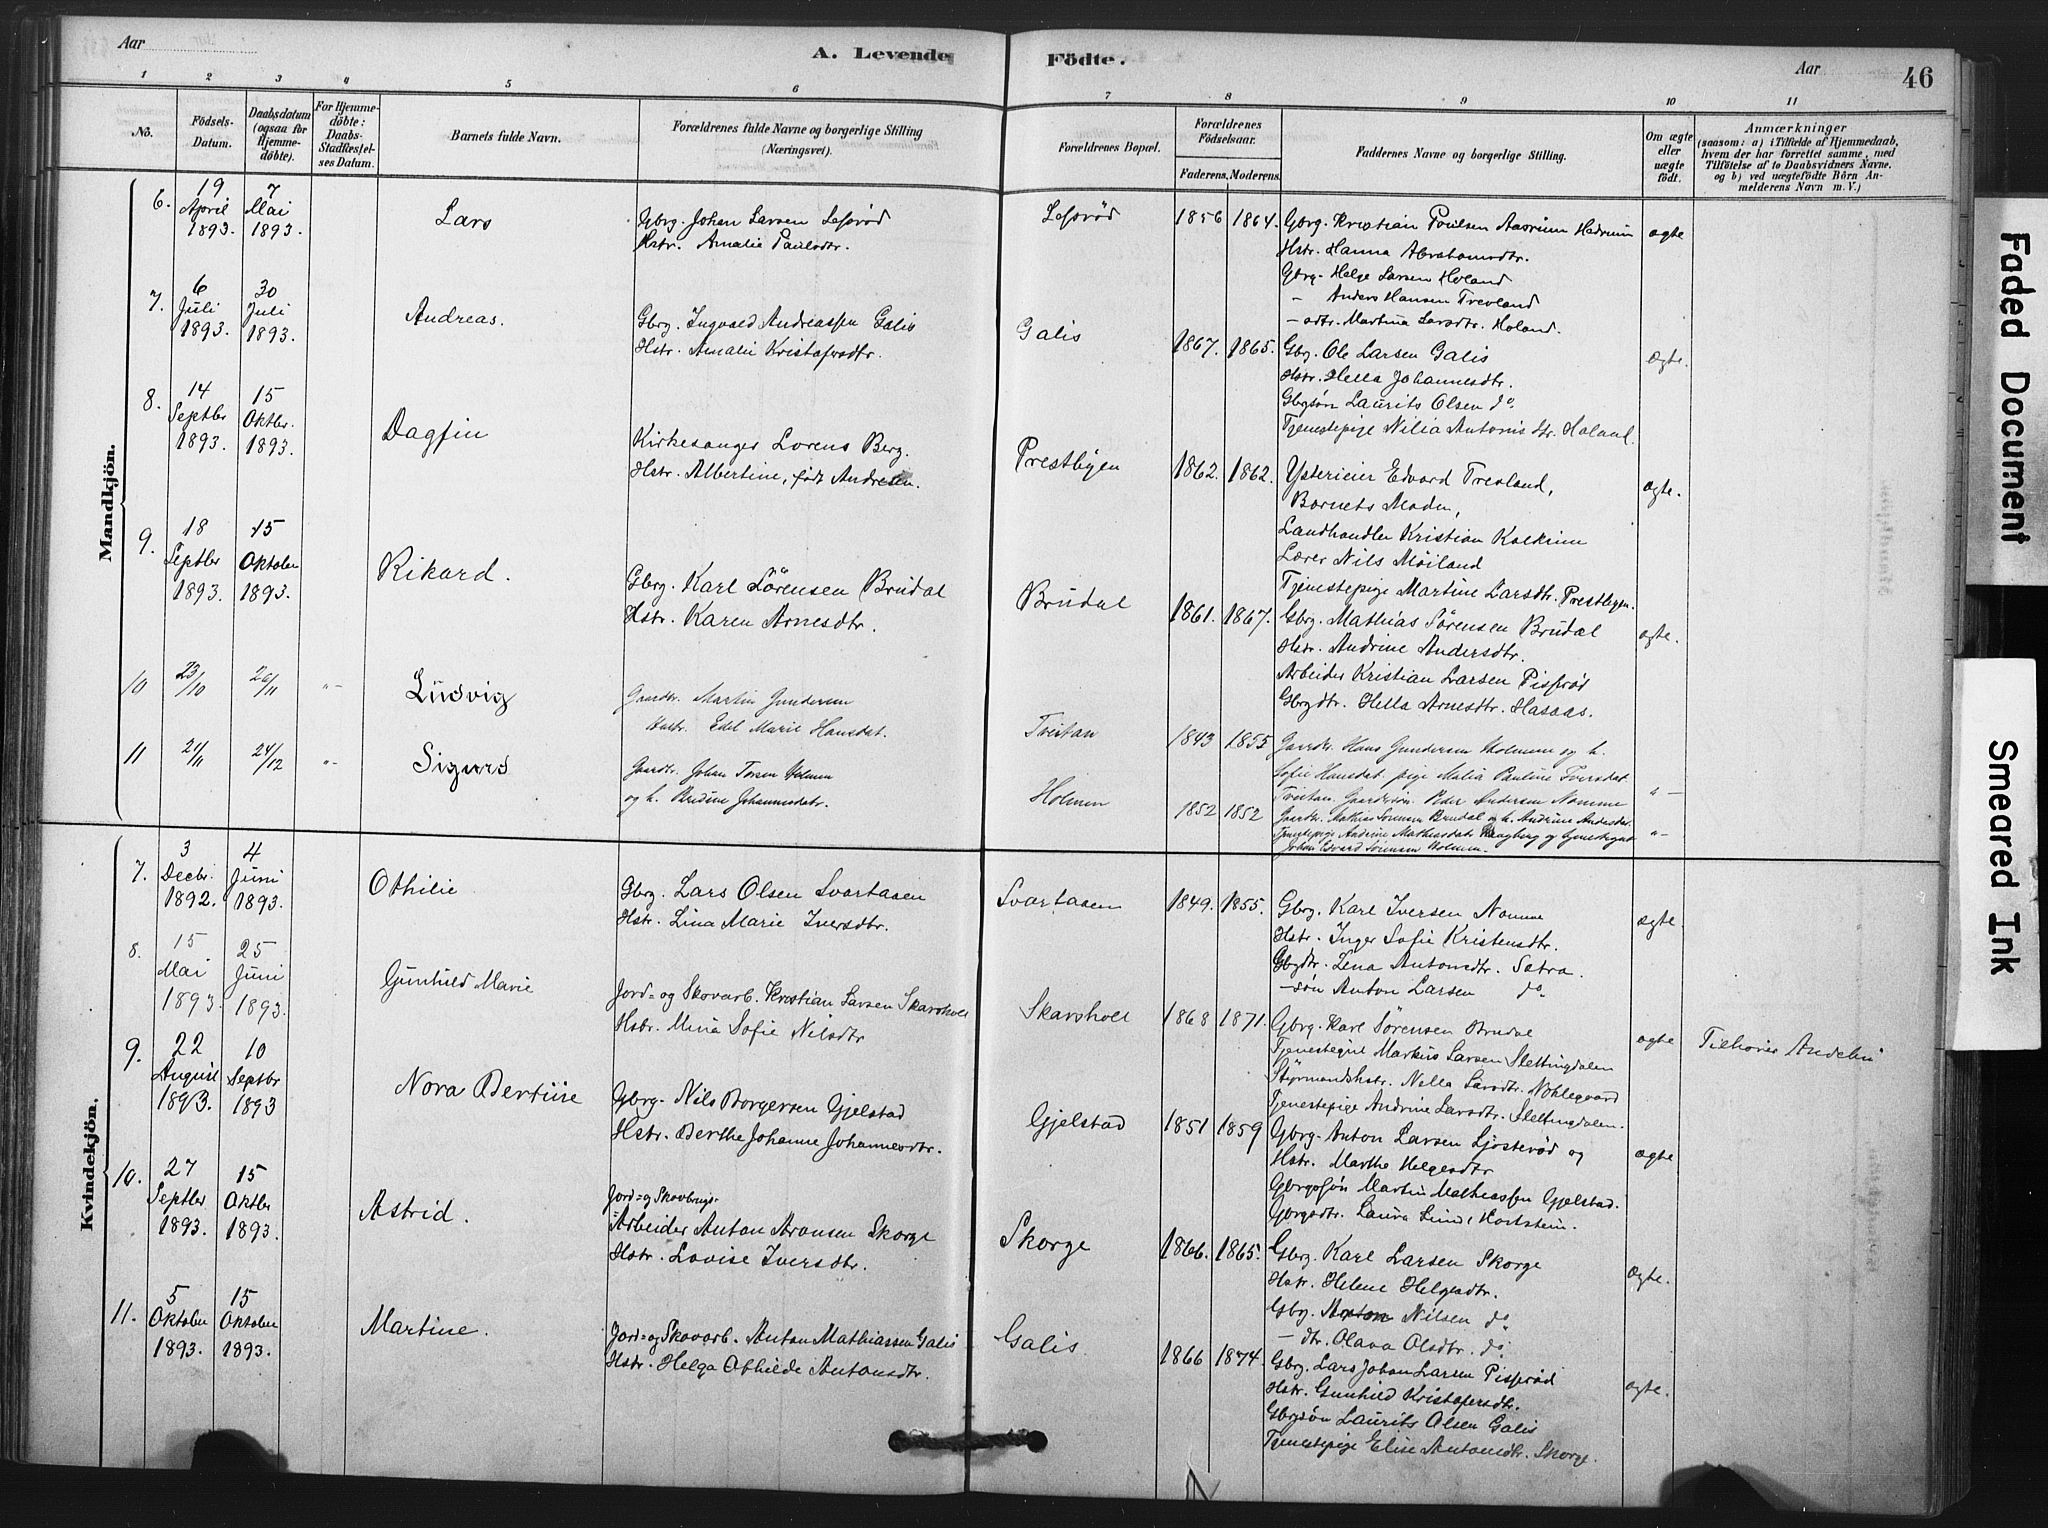 Aar
A. Levende Födte.
Aar
46
1 2 3 4 5 6 7 8 9 10 11
No.
Födsels-Datum.
Daabsdatum (ogsaa for Hjemmedöbte).
For Hjemmedöbte: Daabs-Stadfæstelses Datum.
Barnets fulde Navn.
Forældrenes fulde Navne og borgerlige Stilling (Næringsvei).
Forældrenes Bopæl.
Forældrenes Födselsaar.
Faderens. Moderens.
Faddernes Navne og borgerlige Stilling.
Om ægte eller uægte födt.
Anmærkninger
(saasom: a) i Tilfælde af Hjemmedaab, hvem der har forrettet samme, med Tilföielse af to Daabsvidners Navne. og b) ved uægtefödte Börn Anmelderens Navn m. V.)
Mandkjön.
6. 19 April 1893. 7 Mai 1893.
Lars
Gbrg. Johan Larsen
Hstr. Amalie Paulsdtr.
1856 1864.
Gbrg. Kristian Poulsen Aasrum Hedrum
Hstr. Hanna Abrahamsdtr.
Gbrg. Helge Larsen Holand
– Anders Hansen Trevland
– dtr. Martina Larsdtr. Holand.
ægte
7. 6 Juli 1893. 30 Juli 1893.
Andreas.
Gbrg. Ingvald Andreassen Galis
Hstr. Amalie Kristofersdtr.
Galis
1867. 1865.
Gbg. Ole Larsen Galis
Hstr. Hella Johannesdtr.
Gbgsøn Laurits Olsen do.
Tjenestepige Nilia Antonisdtr. Holand.
Ægte.
8. 14 Septbr 1893. 15 Oktbr. 1893.
Dagfin
Kirkesanger Lorens Berg.
Hstr. Albertine, født Andresen.
Prestbyen
1862. 1862.
Ysterieier Edvard Trevland,
Barnets Moder,
Landhandler Kristian
Lærer Nils Møiland
Tjenestepige Martine Larsdtr. Prestbyen.
ægte.
9. 18 Septbr 1893. 15 Oktober 1893.
Rikard.
Gbrg. Karl Sørensen Brudal
Hstr. Karen Arnesdtr.
Brudal
1861. 1867.
Gbrg. Mathias Sørensen Brudal
Hstr. Andrine Andersdtr.
Arbeider Kristian Larsen Pisserød
Gbrgdtr. Hella Arnesdtr. Hasaas.
ægte.
10 23/10 26/11 -"-
Ludvig
Gaardbr. Martin Gundersen
Hustr. Edel Marie Hansdat.
Trestan
1843 1855
Gaardbr. Hans Gundersen Holmen og h.
Sofie Hansdat. pige Malia Pauline Iversdat.
Trestan. Gaardbrsøn Peder Andersen Nomme
"-
11 21/11 24/12 -"-
Sigurd
Gaardbr. Johan Torsen Holmen
og h. Johannesdatr.
Holmen
1852 1852
Gaardbr. Mathias Sørensen Brudal og h. Andrine Andersdat.
Tjenestepige Andrine Mathiasdat.
Johan Edvard Sørensen Holmen.
"-
Kvindekjön.
7. 3 Decbr. 1892. 4 Juni 1893.
Othilie
Gbrg. Lars Olsen Svartaasen
Hstr. Lina Marie Iversdtr.
Svartaasen
1849. 1855.
Gbrg. Karl Iversen Nomme
Hstr. Inger Sofie Kristensdtr.
Gbgdtr. Lena Antonsdtr. Satra.
– søn Anton Larsen do.
ægte.
8. 15 Mai 1893. 25 Juni 1893.
Gunhild Marie
Jord= og Skovarb. Kristian Larsen Skarsholt
Hstr. Mina Sofie Nilsdtr
Skarsholt
1868 1871.
Gbrg. Karl Sørensen Brudal
Tjenestegut Markus Larsen Slettingdalen
Styrmandshstr. Nella Larsdtr.
Tjenestepige Andrine Larsdtr. Slettingdalen.
ægte
Tilhører Andebu
9. 22 August 1893. 10 Septbr 1893
Nora Bertine
Gbrg. Nils Borgersen Gjelstad
Hstr. Berthe Johanne Johannesdtr.
Gjelstad
1851 1859
Gbrg. Anton Larsen Ljøsterød og
Hstr. Marthe Helgesdtr
Gbrgssøn Martin Mathiassen Gjelstad.
Gbrgsdtr. Laura Lund
ægte
10. 27 Septbr 1893. 15 Oktbr 1893.
Astrid.
Jord= og Skovbrugs=
Arbeider Anton Aronsen Skorge
Hstr. Lovise Iversdtr.
Skorge
1866. 1865.
Gbrg. Karl Larsen Skorge
Hstr. Helene Helgesdtr.
Gbrg. Anton Nilsen do.
– dtr. Olava Olsdtr. do.
Ægte.
11. 5 Oktober 1893. 15 Oktober 1893.
Martine.
Jord= og Skovarb. Anton Mathiassen Galis
Hstr. Helga Othilde Antonsdtr.
Galis.
1866 1874.
Gbrg. Lars Johan Larsen Pisserød
Hstr. Gunhild Kristofersdtr.
Gbrgsøn Laurits Olsen Galis
Tjenestepige Elise Antonsdtr. Skorge.
ægte.
Faded Document
Smeared Ink